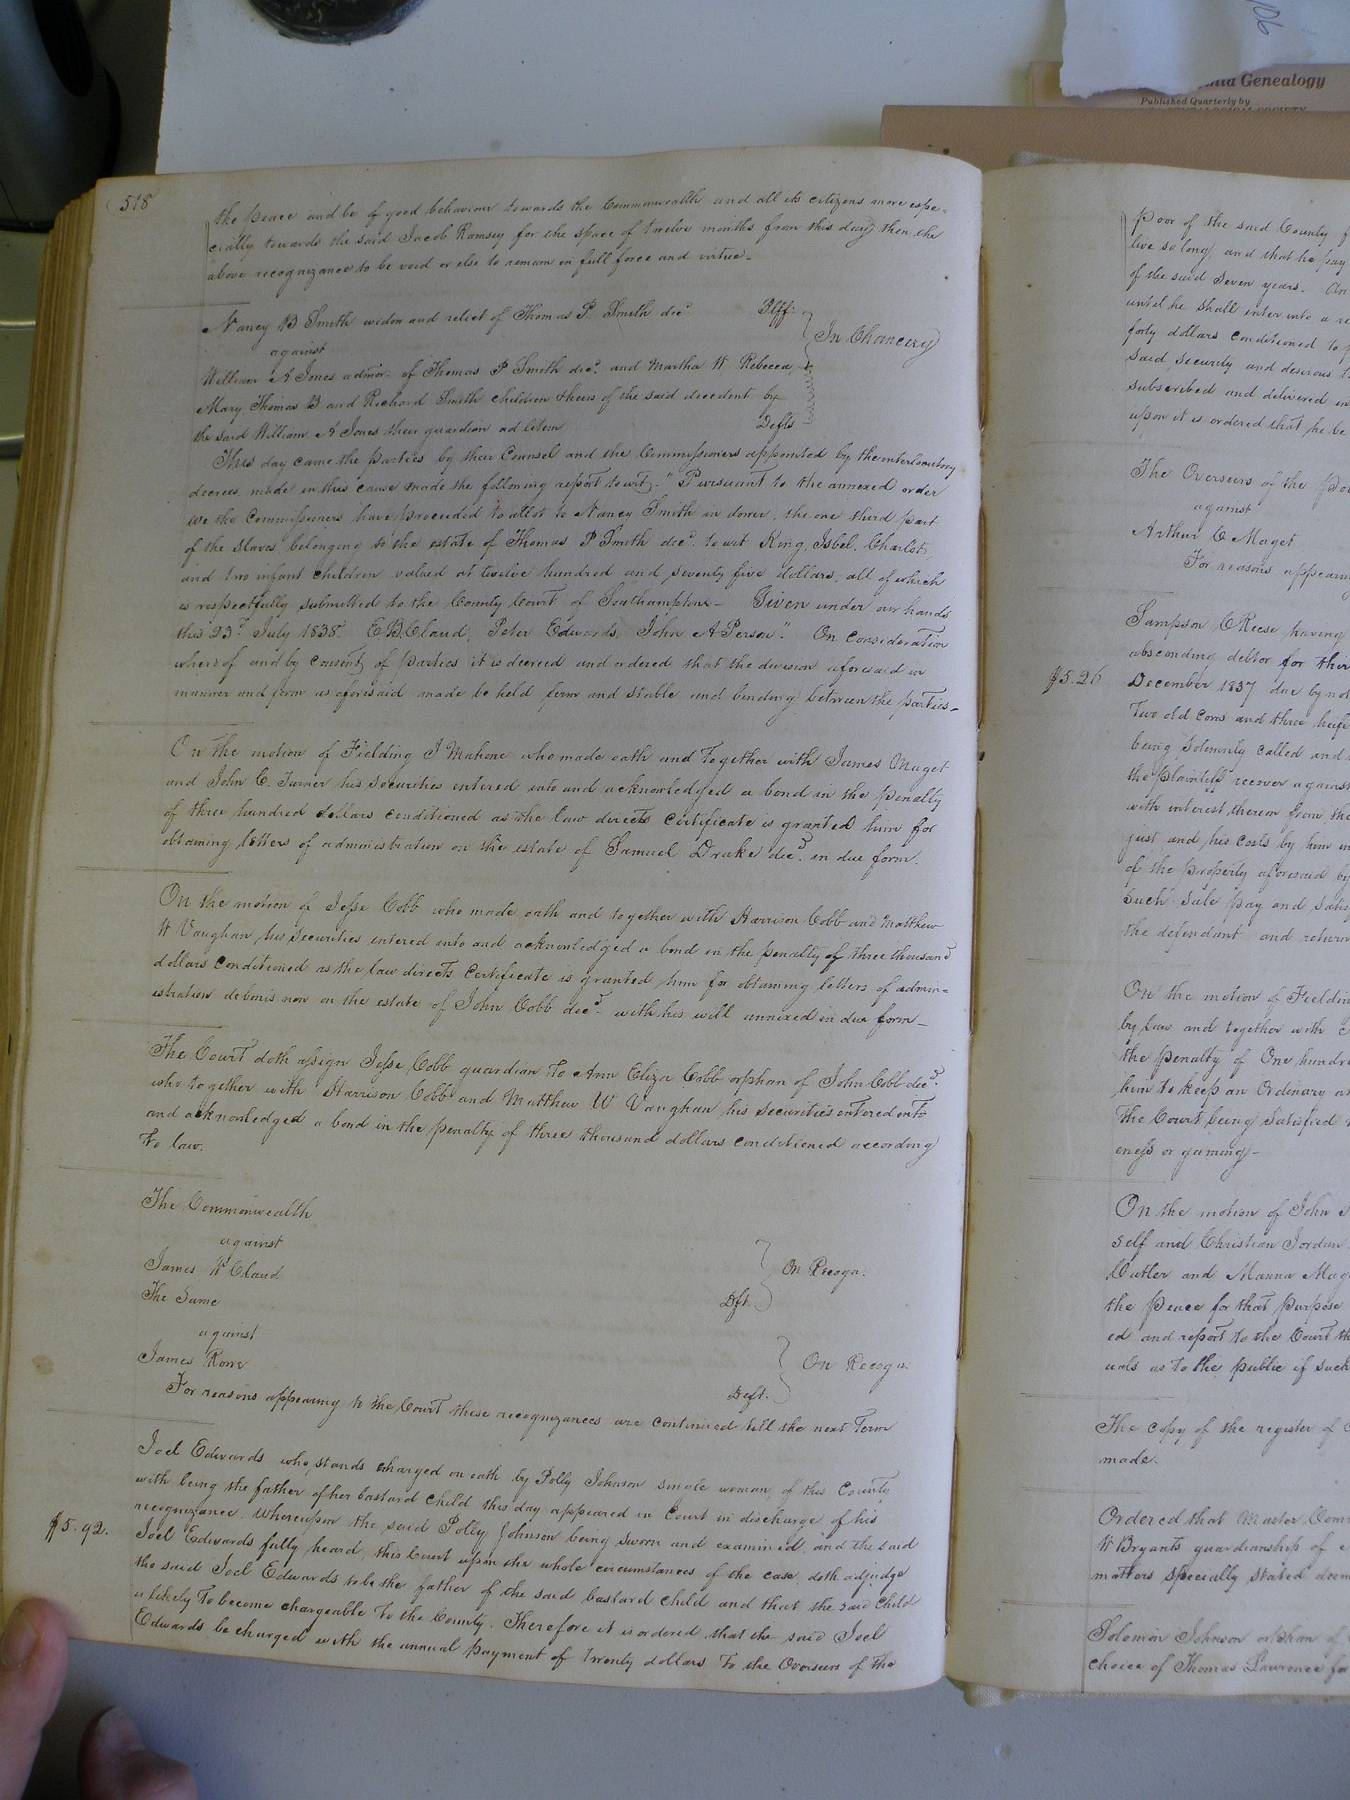 106
Genealogy
Published Quarterly by
518
the peace and be of good behaviour towards the Commonwealth and all its citizens more espe-
cially towards the said Jacob Ramsey for the space of twelve months from this day, then the
above recognizance to be void or else to remain in full force and virtue.
Nancy B Smith widow and relict of Thomas P. Smith decd Plff.
against
In Chancery
William A Jones admor. of Thomas P Smith decd. and Martha W Rebecca,
Mary Thomas B and Richard Smith children & heirs of the said decedent by
the said William A Jones their guardian ad litem Defts
This day came the parties by their Counsel and the Commissioners appointed by the interlocutory
decree made in this cause made the following report towit, "Pursuant to the annexed order
we the Commissioners have proceeded to allot to Nancy Smith in dower, the one third part
of the slaves belonging to the estate of Thomas P Smith decd. to wit King, Isbel, Charlot,
and two infant children valued at twelve hundred and seventy five dollars, all of which
is respectfully submitted to the County Court of Southampton— Given under our hands
this 23d July 1838. E B Claud, Peter Edwards, John A Person". On consideration
whereof and by consent of parties it is decreed and ordered that the division aforesaid in
manner and form as aforesaid made be held firm and stable and binding between the parties—
On the motion of Fielding J Mahone who made oath and together with James Maget
and John C. Turner his securities entered into and acknowledged a bond in the penalty
of three hundred dollars conditioned as the law directs Certificate is granted him for
obtaining letters of administration on the estate of Samuel Drake decd. in due form.
On the motion of Jesse Cobb who made oath and together with Harrison Cobb and Matthew
W Vaughan his securities entered into and acknowledged a bond in the penalty of three thousand
dollars conditioned as the law directs Certificate is granted him for obtaining letters of admin=
istration debonis non on the estate of John Cobb decd. with his will annexed in due form—
The Court doth assign Jesse Cobb guardian to Ann Eliza Cobb orphan of John Cobb decd.
who together with Harrison Cobb and Matthew W Vaughan his securities entered into
and acknowledged a bond in the penalty of three thousand dollars conditioned according
to law.
The Commonwealth
against
On Recogn.
James W Claud
Dft.
The Same
against
On Recogn
James Rom
Deft.
For reasons appearing to the Court these recognizances are continued till the next Term
Joel Edwards who stands charged on oath by Polly Johnson single woman of this County
with being the father of her bastard child this day appeared in Court in discharge of his
recognizance. Whereupon the said Polly Johnson being sworn and examined, and the said
$5.92.
Joel Edwards fully heard, this Court upon the whole circumstances of the case doth adjudge
the said Joel Edwards to be the father of the said bastard child and that the said child
is likely to become chargeable to the County. Therefore it is ordered that the said Joel
Edwards be charged with the annual payment of twenty dollars to the Overseers of the
poor of the said County
live so long, and that he pay
of the said seven years. An
until he shall enter into a re
forty dollars conditioned to
said security and desirous
subscribed and delivered in
upon it is ordered that he be
The Overseers of the Poo
against
Arthur C Maget
For reasons appearing
Sampson C Reese having
absconding debtor for thir
$5.26
December 1837 due by not
Two old cows and three heif
being solemnly called and
the plaintiff recover against
with interest thereon from the
just and his costs by him in
of the property aforesaid by
such sale pay and satis
the defendant and return
On the motion of Fieldin
by law and together with
the penalty of One hundr
him to keep an Ordinary a
the Court being satisfied
eness or gaming—
On the motion of John
self and Christian Jordan
Cutler and Manna Mag
the peace for that purpose
ed and report to the Court th
uals as to the public if such
The copy of the register of
made.
Ordered that Master Com
W Bryants guardianship of
matters specially stated deem
Solomon Johnson orphan of
choice of Thomas Lawrence for